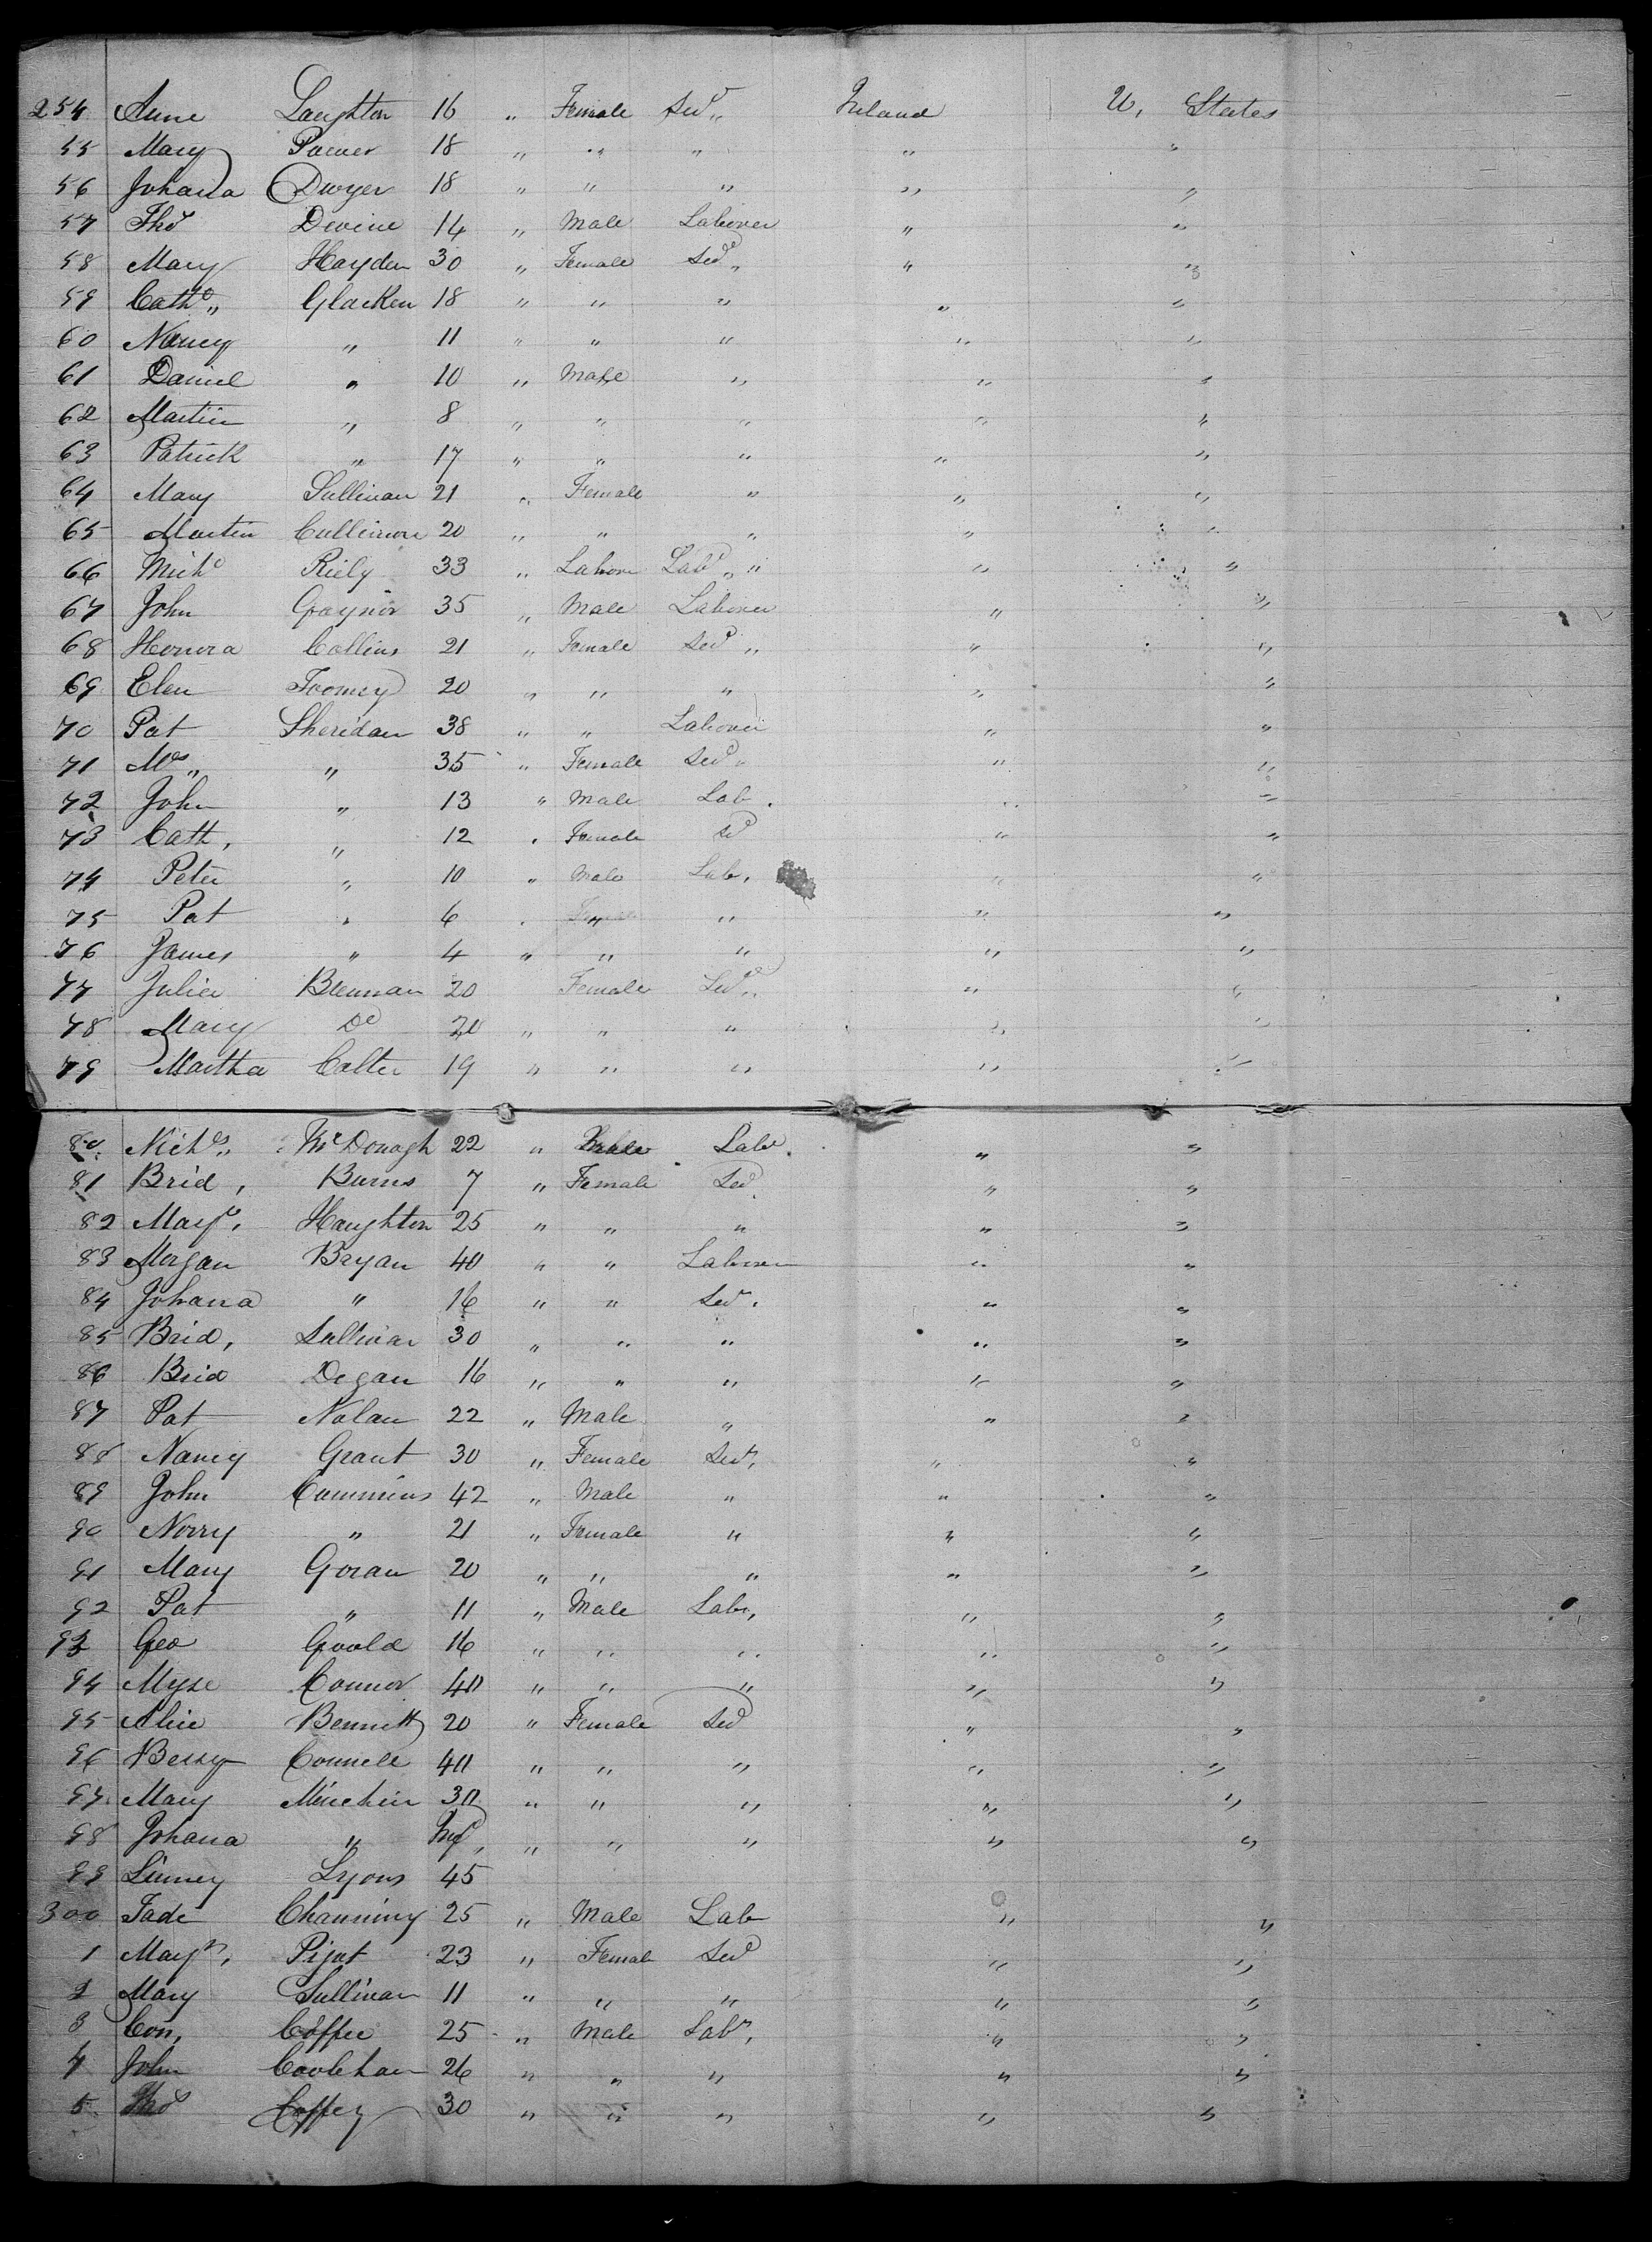 254 Anne Laughton 16 " Female Sert " Ireland U. States
55 Mary Power 18 " " " " "
56 Johana Dwyer 18 " " " " "
57 Thos Devine 14 " Male Laborer " "
58 Mary Hayden 30 " Female " "
59 Cathe " Glacken 18 " " " " "
60 Nancy " 11 " " " " "
61 Daniel " 10 " Male " " "
62 Martin " 8 " " " " "
63 Patrick " 17 " " " " "
64 Mary Sullivan 21 " Female " " "
65 Martin Cullinane 20 " " " " "
66 Michl Riely 33 " Labore Labr " " " "
67 John Graynor 35 " Male Laborer " "
68 Honora Collins 21 " Female " "
69 Elen Toomey 20 " " " " "
70 Pat Sheridan 38 " " Laborer " "
71 Mrs " " 35 " Female " "
72 John " 13 " Male Lab. " "
73 Cath, " 12 " Female " "
74 Peter " 10 " Male Lab. " "
75 Pat " 6 " " " " "
76 James " 4 " " " " "
77 Julia Brennan 20 Female " "
78 Mary Do 20 " " " " "
79 Martha Colter 19 " " " " "
80 Nichs " McDonagh 22 " Male Labr. " "
81 Brid, Burns 7 " Female " "
82 Margt, Haughton 25 " " " " "
83 Morgan Bryan 40 " " Laborer " "
84 Johana " 16 " " " "
85 Brid, Sullivan 30 " " " " "
86 Brid Degan 16 " " " " "
87 Pat Nolan 22 " Male " " "
88 Nancy Grant 30 " Female " "
89 John Cummins 42 " Male " " "
90 Norry " 21 " Female " " "
91 Mary Goran 20 " " " " "
92 Pat " 11 " Male Labr, " "
93 Geo Goold 16 " " " " "
94 Connor 40 " " " " "
95 Alice Bennett 20 " Female " "
96 Bessy Connell 40 " " " " "
97 Mary Minchin 30 " " " " "
98 Johana " Inft, " " " " "
99 Lyons 45
300 Tade Channing 25 " Male Lab " "
1 Margt, 23 " Female " "
2 Mary Sullivan 11 " " " " "
3 Con, Coffee 25 " Male Labr, " "
4 John Coolehan 26 " " " " "
5 Thos Coffey 30 " " " " "